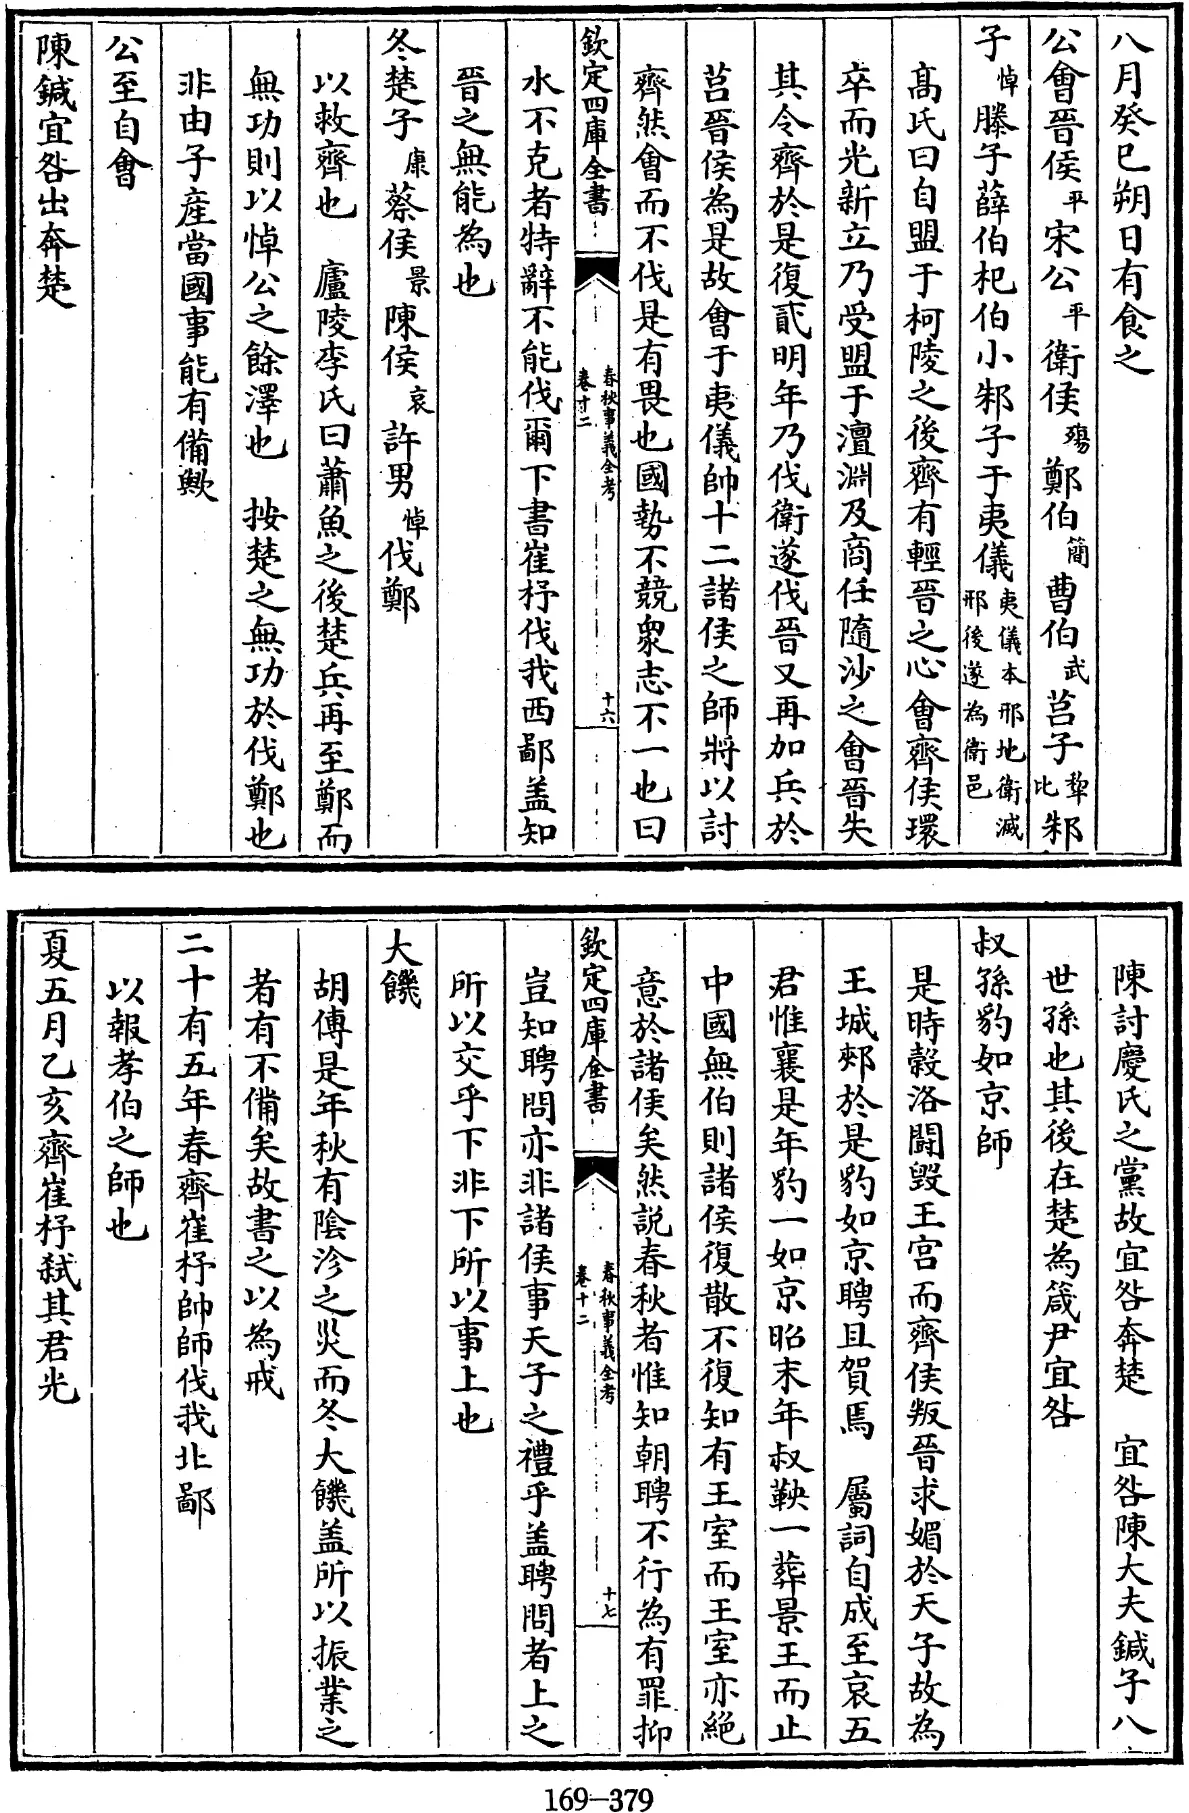 八月癸巳朔日有食之
公會晉侯平宋公平衛侯殤鄭伯簡曹伯武莒子犂比邾
子悼滕子薛伯杞伯小邾子于夷儀夷儀本邢地衛滅邢後遂為衛邑
高氏曰自盟于柯陵之後齊有輕晉之心會齊侯環
卒而光新立乃受盟于澶淵及商任隨沙之會晉失
其令齊於是復貳明年乃伐衛遂伐晉又再加兵於
莒晉侯為是故會于夷儀帥十二諸侯之師將以討
齊然會而不伐是有畏也國勢不競衆志不一也曰
欽定四庫全書
春秋事義全考
卷十二
十六
水不克者特辭不能伐爾下書崔杼伐我西鄙盖知
晉之無能為也
冬楚子康蔡侯景陳侯哀許男悼伐鄭
以救齊也　廬陵李氏曰蕭魚之後楚兵再至鄭而
無功則以悼公之餘澤也　按楚之無功於伐鄭也
非由子產當國事能有備歟
公至自會
陳鍼宜咎出奔楚
陳討慶氏之黨故宜咎奔楚　宜咎陳大夫鍼子八
世孫也其後在楚為箴尹宜咎
叔孫豹如京師
是時穀洛鬭毀王宮而齊侯叛晉求媚於天子故為
王城郟於是豹如京聘且賀焉　屬詞自成至哀五
君惟襄是年豹一如京昭末年叔鞅一葬景王而止
中國無伯則諸侯復散不復知有王室而王室亦絕
意於諸侯矣然説春秋者惟知朝聘不行為有罪抑
欽定四庫全書
春秋事義全考
卷十二
十七
豈知聘問亦非諸侯事天子之禮乎盖聘問者上之
所以交乎下非下所以事上也
大饑
胡傳是年秋有陰沴之災而冬大饑盖所以振業之
者有不備矣故書之以為戒
二十有五年春齊崔杼帥師伐我北鄙
以報孝伯之師也
夏五月乙亥齊崔杼弑其君光
169-379